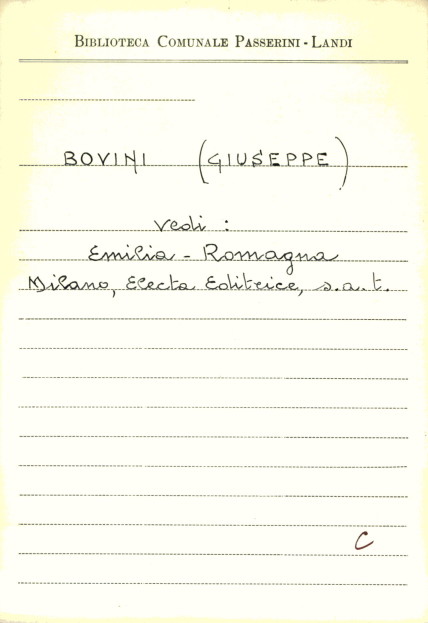 BIBLIOTECA COMUNALE PASSERINI - LANDI
BOVINI (GIUSEPPE)
Vedi :
Emilia - Romagna
Milano, Electa Editrice, s.a.t.
C